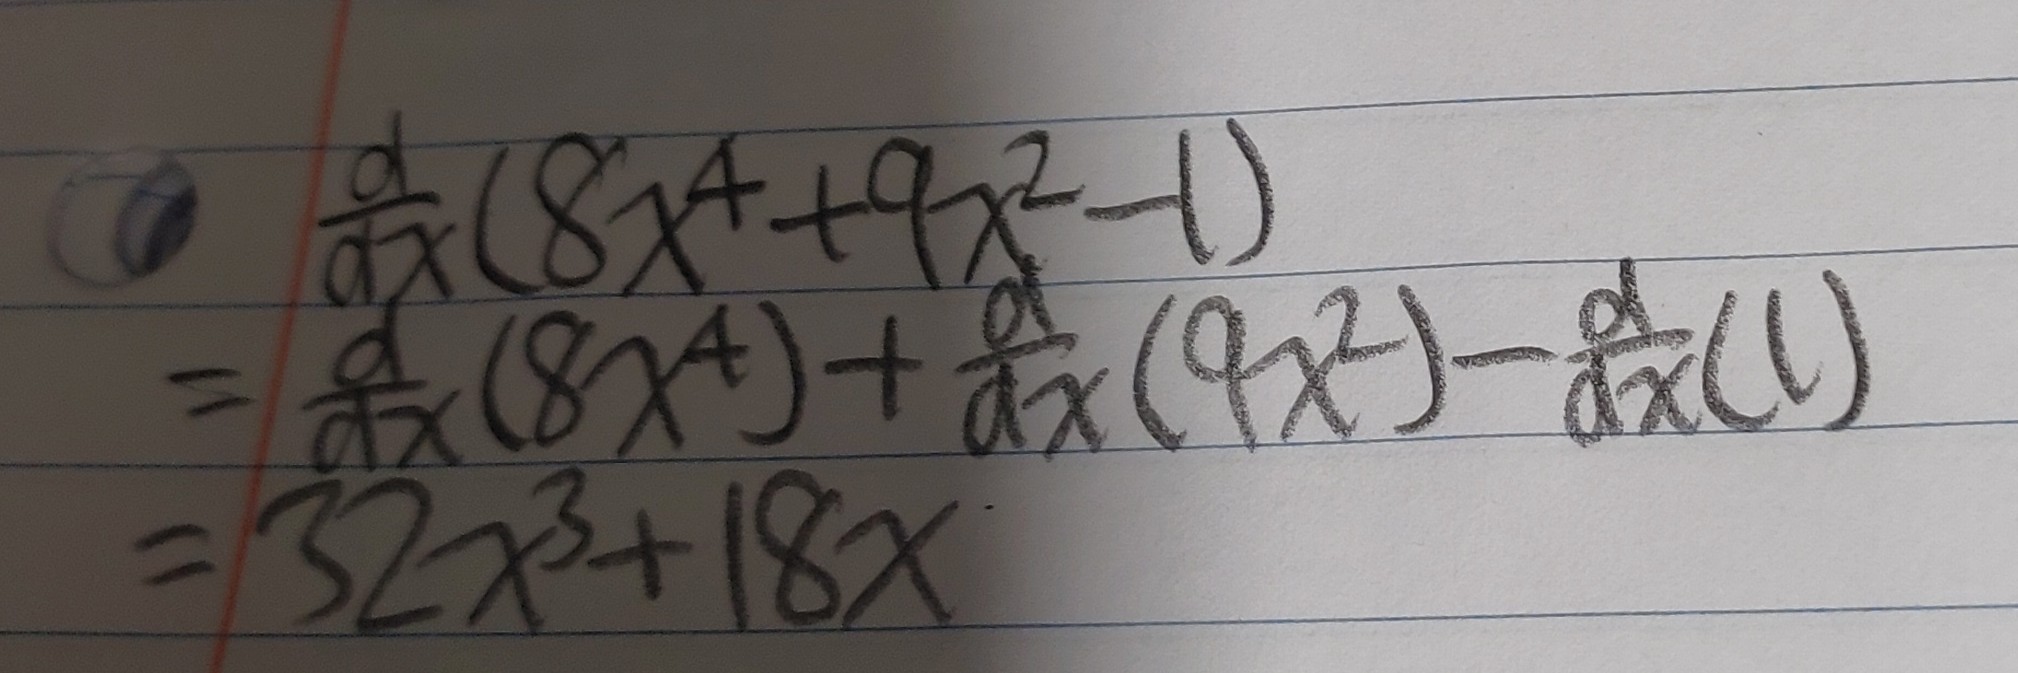 d/dx(8x⁴+9x²-1)
= d/dx(8x⁴)+ d/dx(9x²)- d/dx(1)
= 32x³+18x